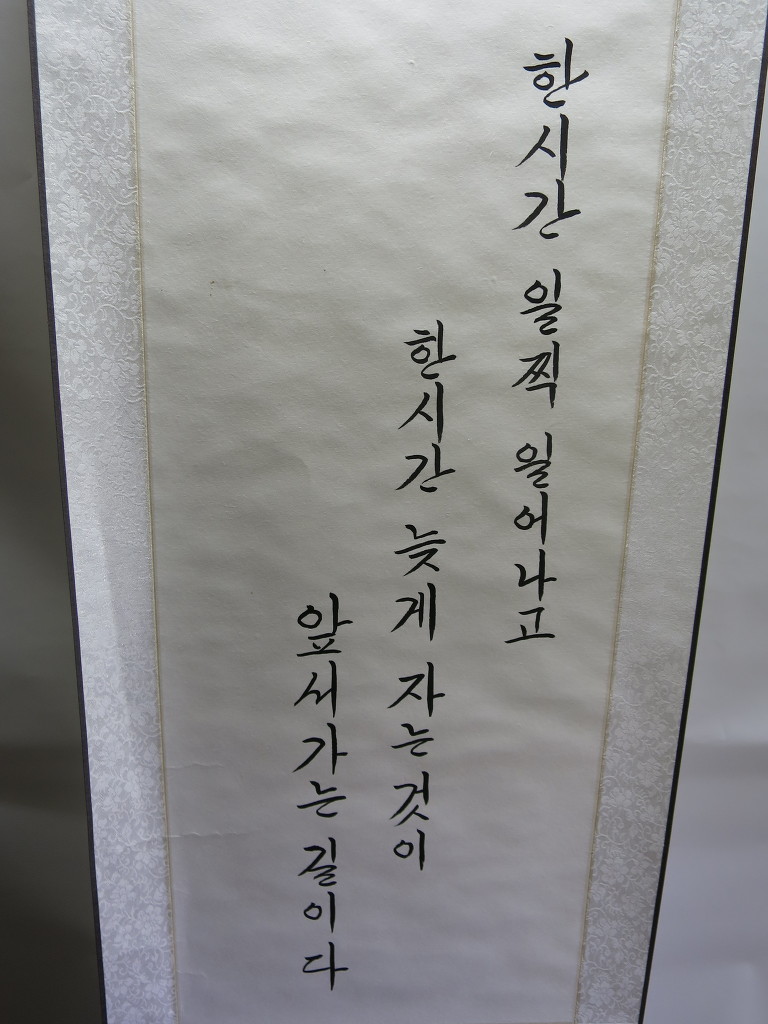 한시간 일찍 일어나고
한시간 늦게 자는것이
앞서가는 길이다